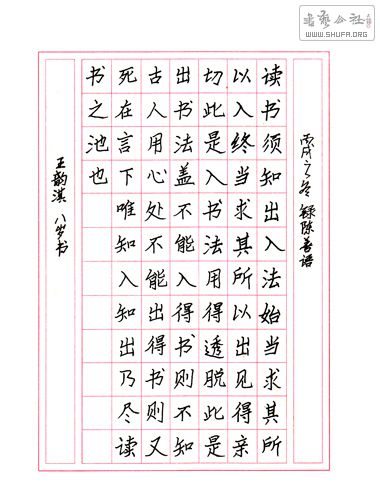 書藝公社
WWW.SHUFA.ORG
丙戌之冬 録陈善语
读书须知出入法始当求其所
以入终当求其所以出见得亲
切此是入书法用得透脱此是
出书法盖不能入得书则不知
古人用心处不能出得书则又
死在言下唯知入知出乃尽读
书之池也
王韵淇 八岁书